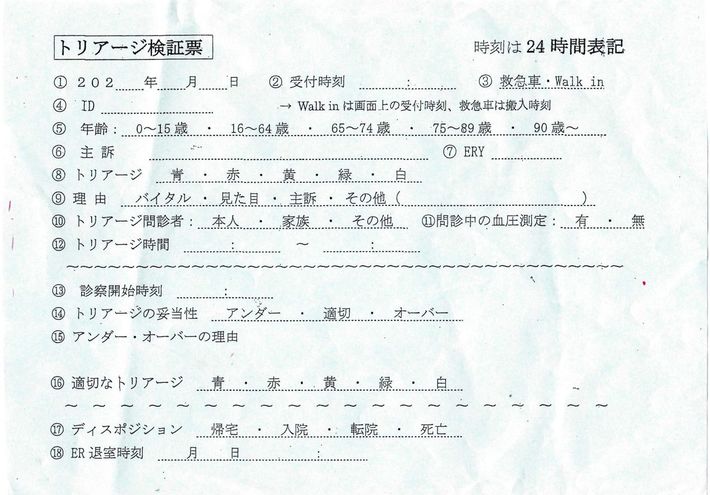 トリアージ検証票
時刻は24時間表記
① 202 年 月 日 ② 受付時刻 : ③ 救急車・Walk in
④ ID → Walk in は画面上の受付時刻、救急車は搬入時刻
⑤ 年齢: 0～15歳 ・ 16～64歳 ・ 65～74歳 ・ 75～89歳 ・ 90歳～
⑥ 主訴 ⑦ ERY
⑧ トリアージ 青 ・ 赤 ・ 黄 ・ 緑 ・ 白
⑨ 理由 バイタル ・ 見た目 ・ 主訴 ・ その他 ( )
⑩ トリアージ問診者: 本人 ・ 家族 ・ その他 ⑪問診中の血圧測定: 有 ・ 無
⑫ トリアージ時間 : ～ :
⑬ 診察開始時刻 :
⑭ トリアージの妥当性 アンダー ・ 適切 ・ オーバー
⑮ アンダー・オーバーの理由
⑯ 適切なトリアージ 青 ・ 赤 ・ 黄 ・ 緑 ・ 白
⑰ ディスポジション 帰宅 ・ 入院 ・ 転院 ・ 死亡
⑱ ER退室時刻 月 日 :